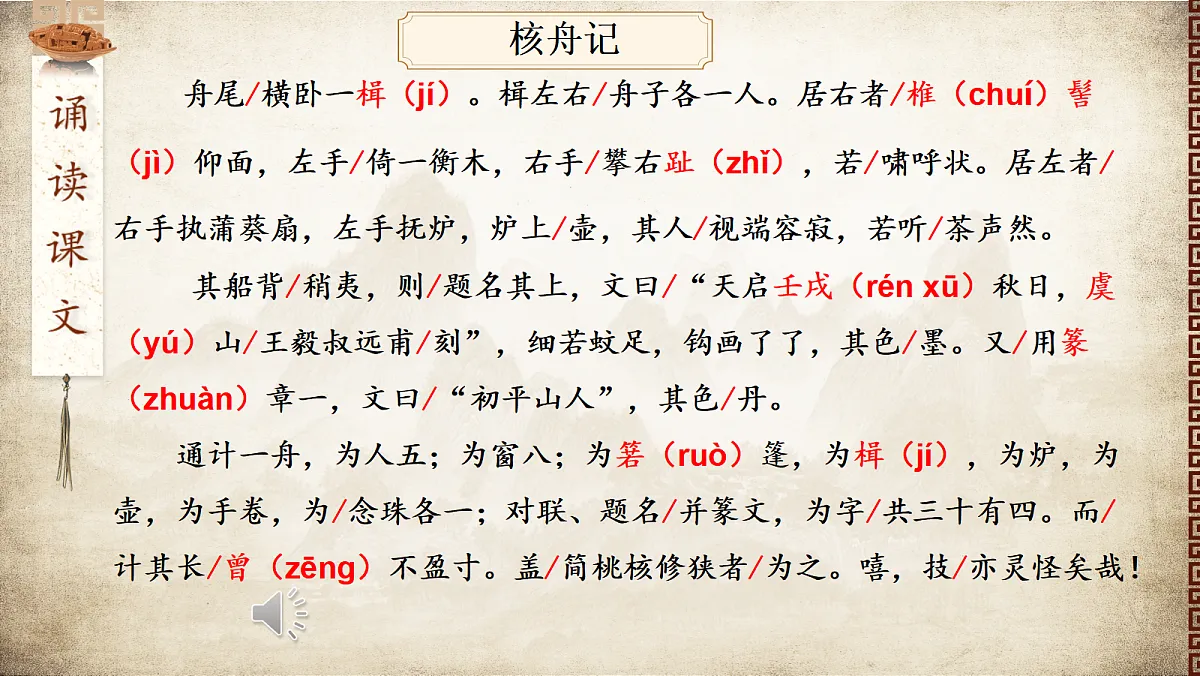 核舟记
诵读课文
舟尾/横卧一楫（jí）。楫左右/舟子各一人。居右者/椎（chuí）髻
（jì）仰面，左手/倚一衡木，右手/攀右趾（zhǐ），若/啸呼状。居左者/
右手执蒲葵扇，左手抚炉，炉上/壶，其人/视端容寂，若听/茶声然。
其船背/稍夷，则/题名其上，文曰/“天启壬戌（rén xū）秋日，虞
（yú）山/王毅叔远甫/刻”，细若蚊足，钩画了了，其色/墨。又/用篆
（zhuàn）章一，文曰/“初平山人”，其色/丹。
通计一舟，为人五；为窗八；为箬（ruò）篷，为楫（jí），为炉，为
壶，为手卷，为/念珠各一；对联、题名/并篆文，为字/共三十有四。而/
计其长/曾（zēng）不盈寸。盖/简桃核修狭者/为之。嘻，技/亦灵怪矣哉！